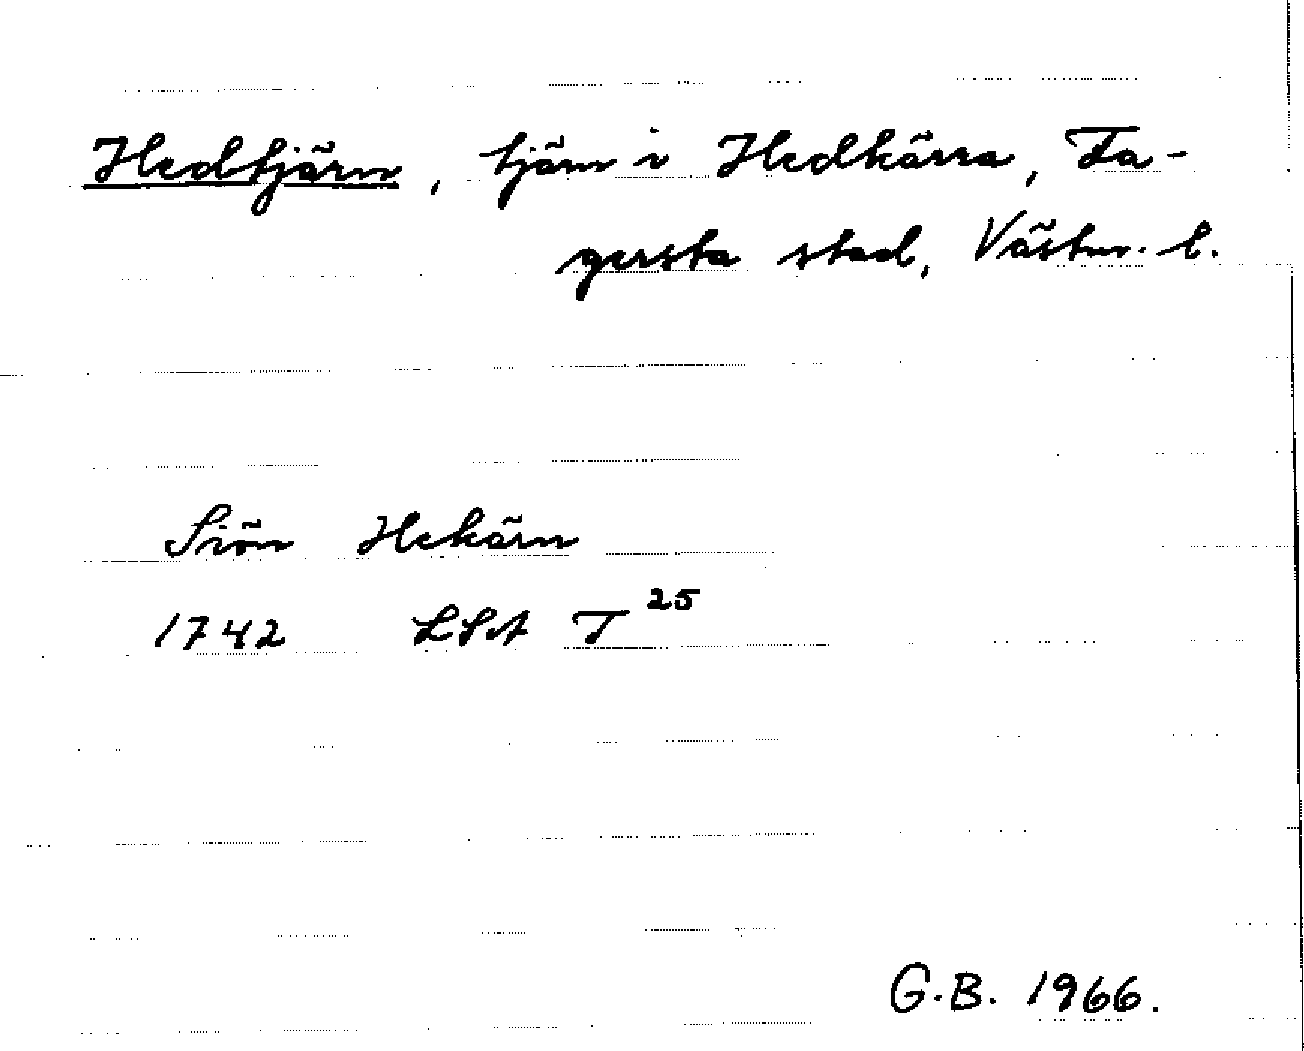 Hedtjärn, tjärn i Hedkärra, Fa-
gersta stad, Västm. l.
Siön Hekärn
1742 LSA T 25
G.B. 1966.